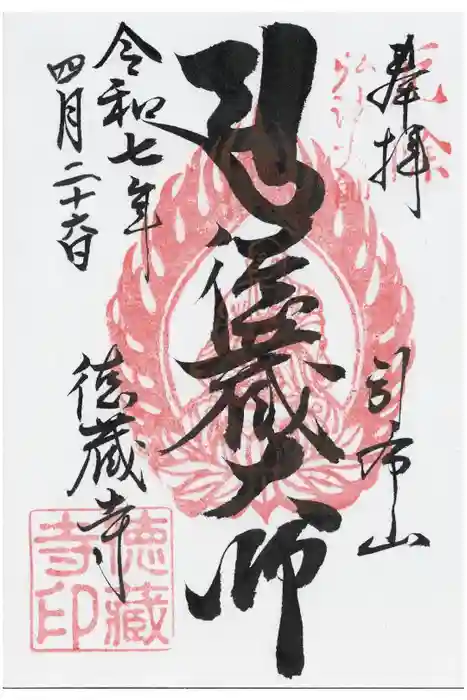 奉拝
引布山
弘徳蔵大師
令和七年
四月二十六日
徳蔵寺
徳蔵寺印